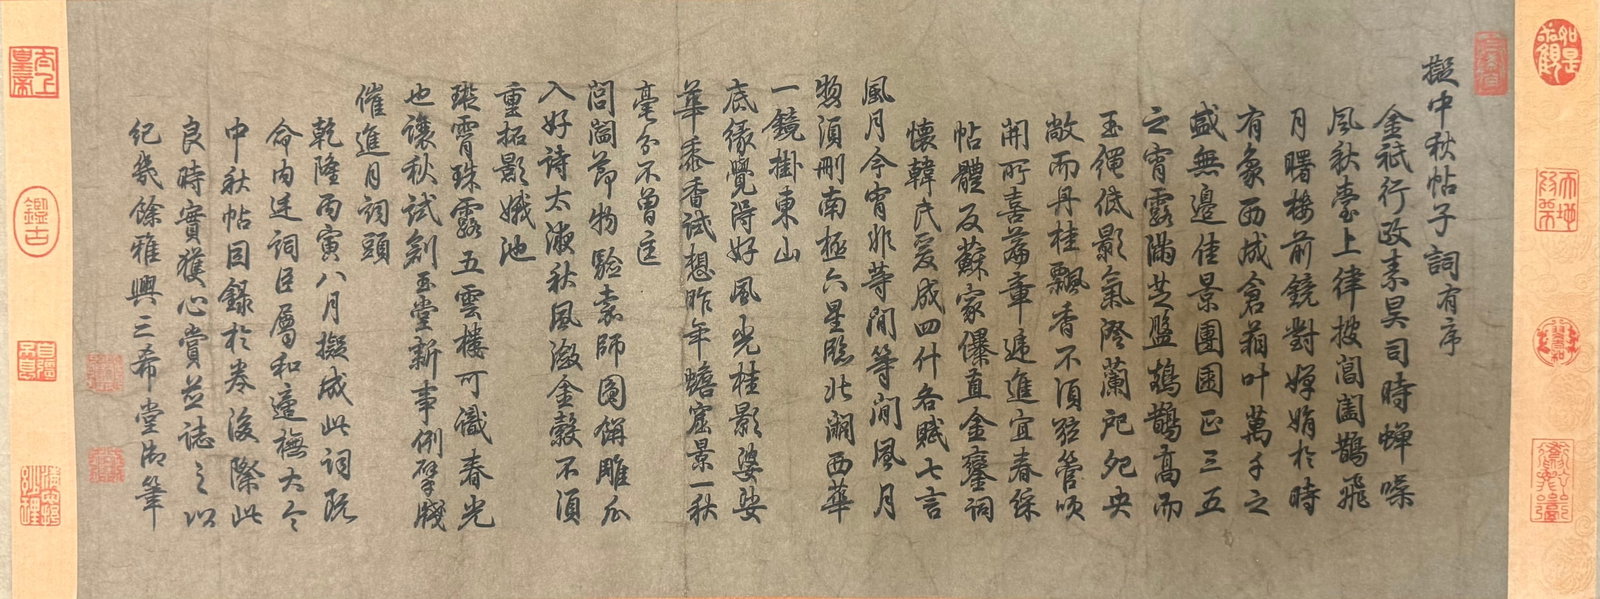 擬中秋帖子詞有序
金祇行政素昊司時蟬噪
風秋臺上律披閶闔鵲飛
月曙樓前鏡對嬋娟於時
有象西成倉箱叶萬千之
盛無邊佳景團圞正三五
之宵露滿芝盤鵷鵲高而
玉繩低影氣澄蘭畹央
敞而丹桂飄香不須弦管頌
開所喜篇章遞進宜春綵
帖體反蘇家儤直金鑾詞
懷韓氏爰成四什各賦七言
風月今宵非等閒等閒風月
總須刪南極六星臨北澗西華
一鏡掛東山
底緣覺得好風光桂影婆娑
華黍香試想昨年蟾窟景一秋
毫分不曾
閭閻節物驗京師圓餅雕瓜
入好詩太液秋風激金縠不須
重拓影娥池
璇霄珠露五雲樓可儗春光
也讓秋試創玉堂新事例擘牋
催進月詞頭
乾隆丙寅八月擬成此詞既
命內廷詞臣屬和適撫大令
中秋帖因錄於卷後際此
良時實獲心賞並誌之以
紀幾餘雅興三希堂御筆
太上皇帝
鑑古
自彊不息
如是我觀